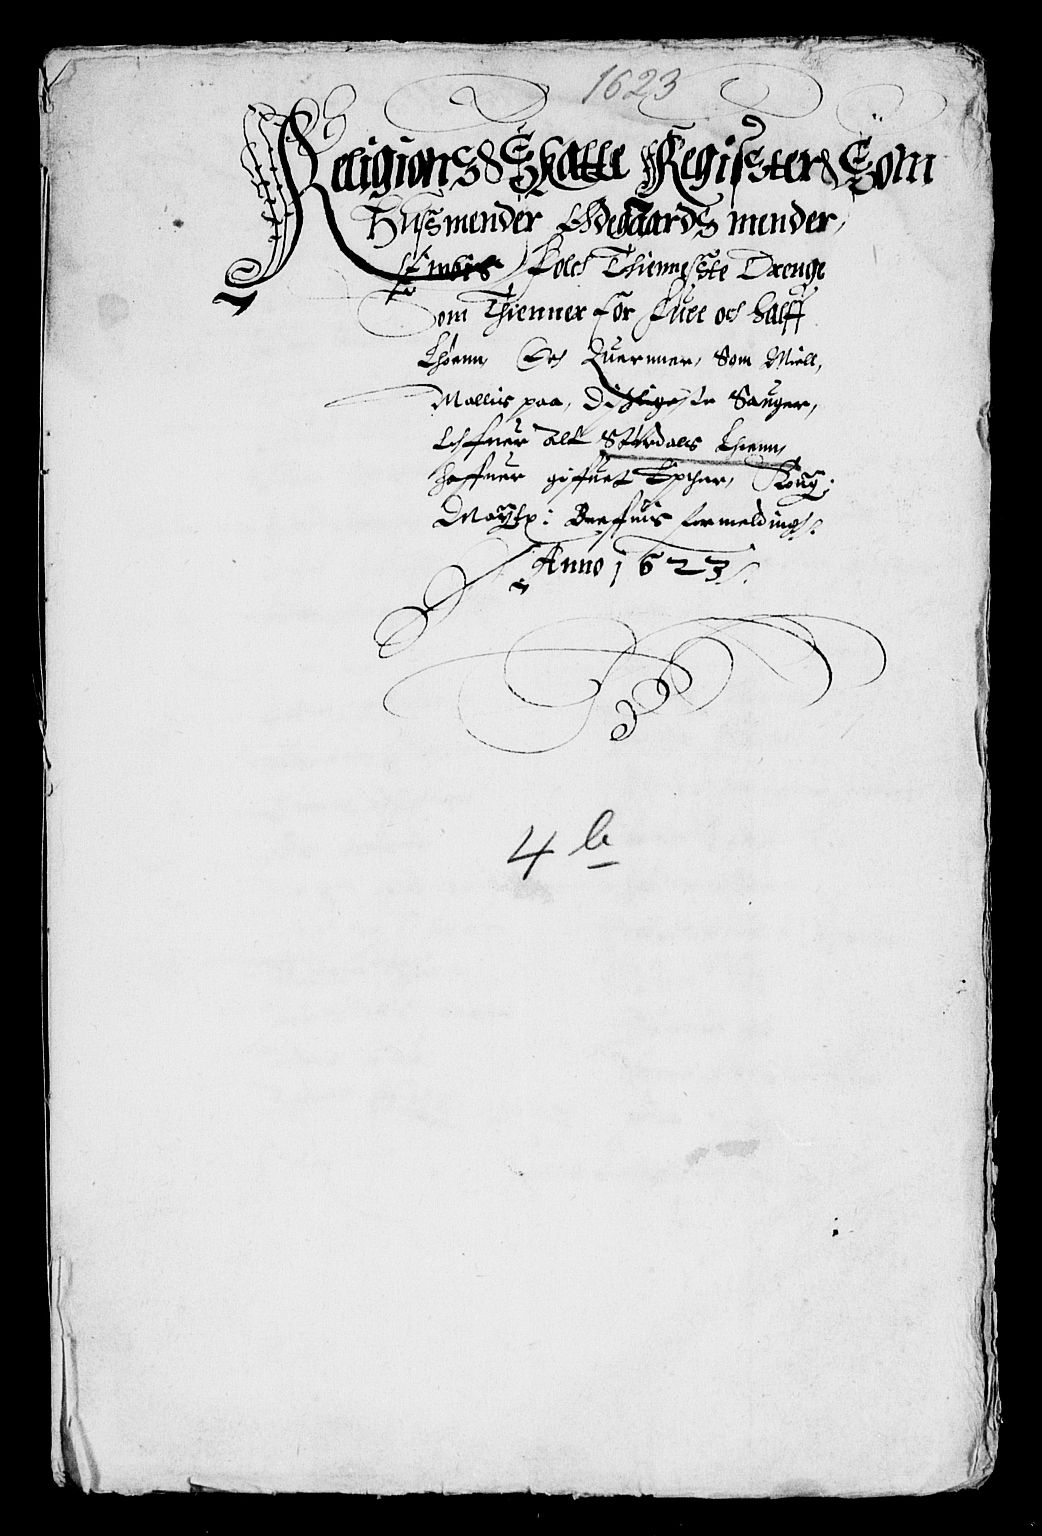 1623
Religions Skatte Register Som
Husmender Ødegaards mender,
Folch Thienneste Drenge
Som Thienner for fuld och halff
Løenn, Och Quernner, Som Miell,
Mallis paa, Disligeste Sauger,
alt Størdals Lhenn,
haffuer giffuet Epther, Kong:
Maytz: Breffuis formelding.
Anno 1623
4 b